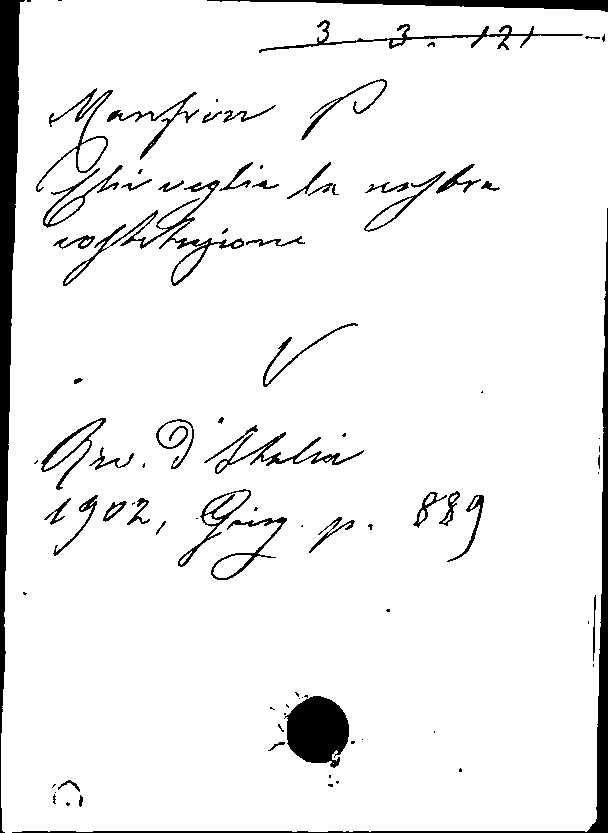 3. 3. 121
Manfrin P
Chi veglia la nostra
costituzione
V
Riv. d'Italia
1902, Giug. p. 889